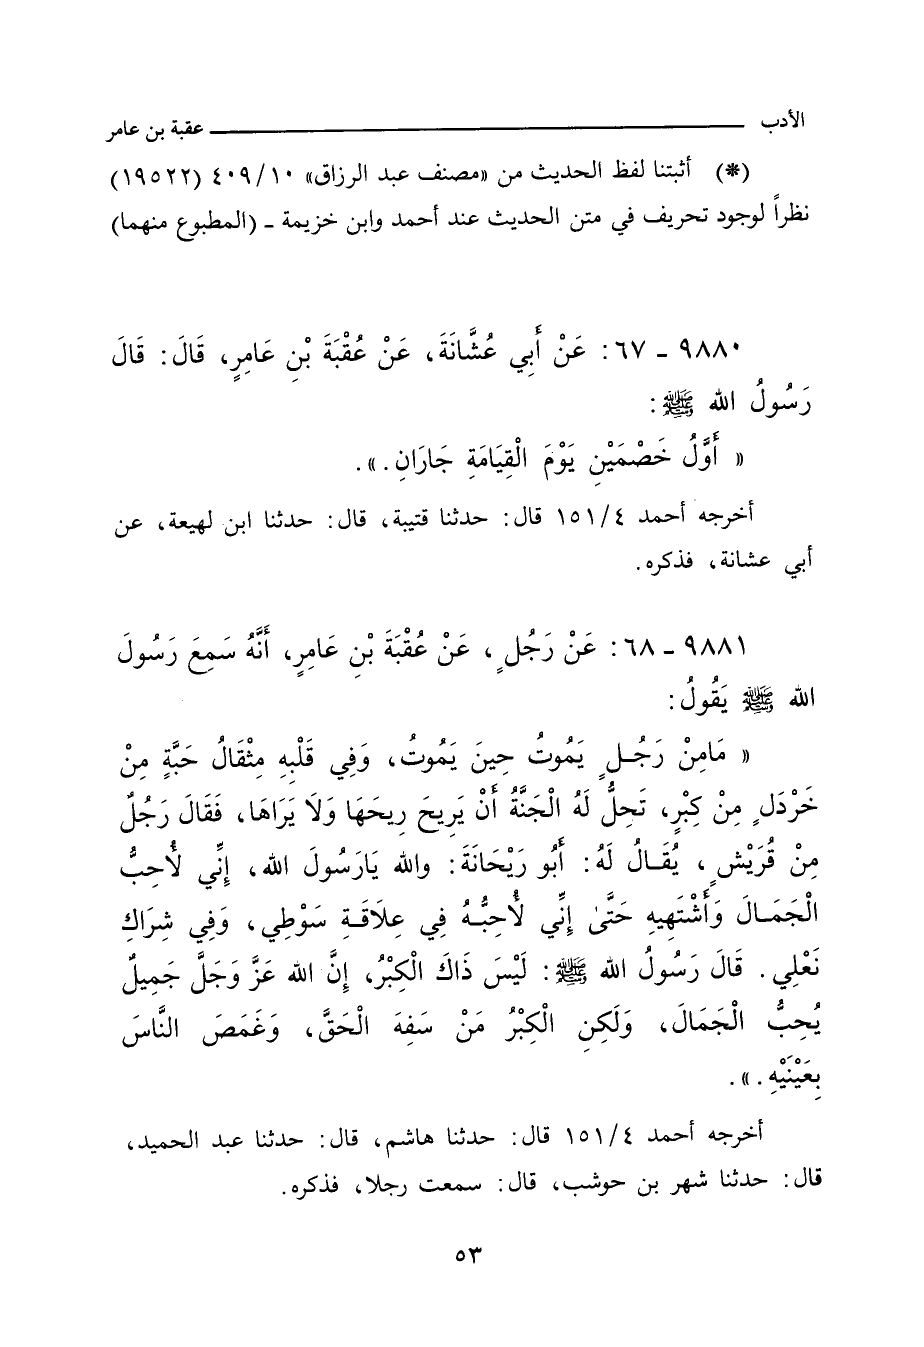 الأدب ــــــــــــ عقبة بن عامر
(*) أثبتنا لفظ الحديث من «مصنف عبد الرزاق» ٤٠٩/١٠ (١٩٥٢٢)
نظراً لوجود تحريف في متن الحديث عند أحمد وابن خزيمة ـ (المطبوع منهما)
٩٨٨٠ ـ ٦٧: عَنْ أَبِي عُشَّانَةَ، عَنْ عُقْبَةَ بْنِ عَامِرٍ، قَالَ: قَالَ
رَسُولُ الله ﷺ:
« أَوَّلُ خَصْمَيْنِ يَوْمَ الْقِيَامَةِ جَارَانِ.».
أخرجه أحمد ١٥١/٤ قال: حدثنا قتيبة، قال: حدثنا ابن لهيعة، عن
أبي عشانة، فذكره.
٩٨٨١ ـ ٦٨: عَنْ رَجُلٍ، عَنْ عُقْبَةَ بْنِ عَامِرٍ، أَنَّهُ سَمِعَ رَسُولَ
الله ﷺ يَقُولُ:
« مَامِنْ رَجُلٍ يَمُوتُ حِينَ يَمُوتُ، وَفِي قَلْبِهِ مِثْقَالُ حَبَّةٍ مِنْ
خَرْدَلٍ مِنْ كِبْرٍ، تَحِلُّ لَهُ الْجَنَّةُ أَنْ يَرِيحَ رِيحَهَا وَلَا يَرَاهَا، فَقَالَ رَجُلٌ
مِنْ قُرَيْشٍ، يُقَالُ لَهُ: أَبُو رَيْحَانَةَ: والله يَارَسُولَ الله، إِنِّي لَأُحِبُّ
الْجَمَالَ وَأَشْتَهِيهِ حَتَّىٰ إِنِّي لَأُحِبُّهُ فِي عِلَاقَةِ سَوْطِي، وَفِي شِرَاكِ
نَعْلِي. قَالَ رَسُولُ الله ﷺ: لَيْسَ ذَاكَ الْكِبْرُ، إِنَّ الله عَزَّ وَجَلَّ جَمِيلٌ
يُحِبُّ الْجَمَالَ، وَلَكِنِ الْكِبْرُ مَنْ سَفِهَ الْحَقَّ، وَغَمَصَ النَّاسَ
بِعَيْنَيْهِ.».
أخرجه أحمد ١٥١/٤ قال: حدثنا هاشم، قال: حدثنا عبد الحميد،
قال: حدثنا شهر بن حوشب، قال: سمعت رجلا، فذكره.
٥٣